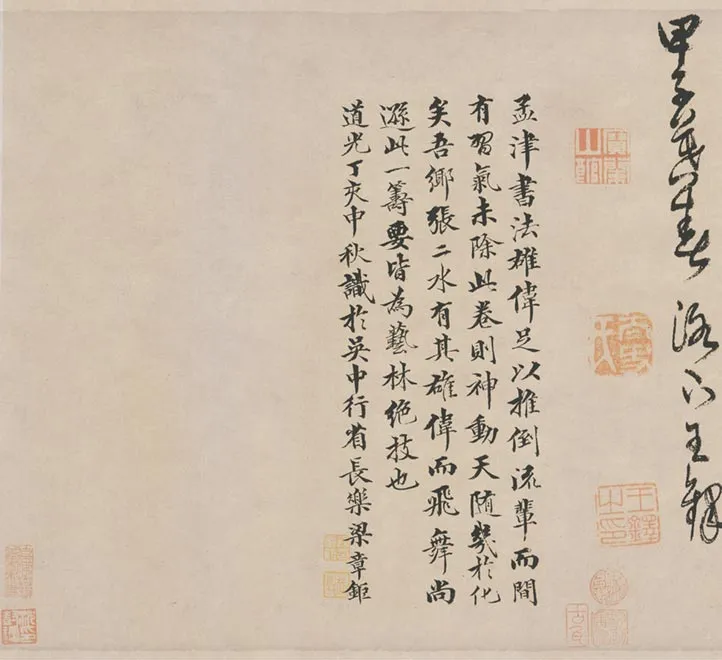 甲子莫春
洛下王鐸
孟津書法雄偉足以推倒流輩而間
有習氣未除此卷則神動天隨幾於化
矣吾鄉張二水有其雄偉而飛舞尚
遜此一籌要皆為藝林絕技也
道光丁亥中秋識於吳中行省長樂梁章鉅
王鐸之印